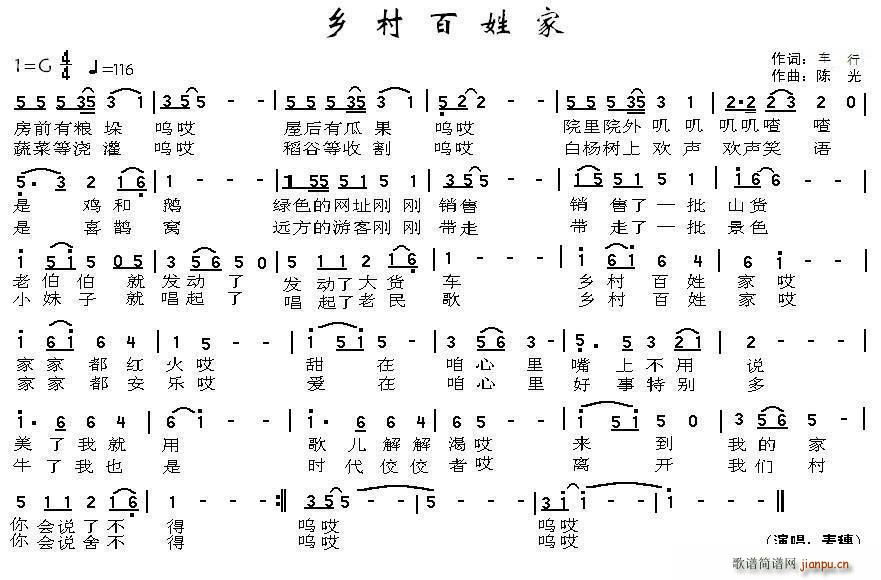 乡村百姓家
1=G 4/4 ♩=116
作词：车 行
作曲：陈 光
5 5 5 35 3 1 | 3 5 5 - - | 5 5 5 35 3 1 | 5 2 2 - - | 5 5 5 35 3 1 | 2· 2 2 3 2 0 |
房前有粮 垛 呜哎 屋后有瓜 果 呜哎 院里院外 叽 叽 叽叽喳 喳
蔬菜等浇 灌 呜哎 稻谷等收 割 呜哎 白杨树上 欢 声 欢声笑 语
5· 3 2 1 6 | 1 - - - | 1 1 5 5 5 1 5 1 | 3 5 5 - - | 1 5 5 1 5 1 | 1 6 6 - - |
是 鸡和 鹅 绿色的网址刚刚 销售 销 售了一批 山货
是 喜鹊 窝 远方的游客刚刚 带走 带 走了一批 景色
1 5 1 5 0 5 | 3 5 6 5 0 | 5 1 1 2 1 6 | 1 - - - | 1 6 1 6 4 | 6 1 - - |
老伯伯 就 发动 了 发动了大货 车 乡村 百姓 家哎
小妹子 就 唱起 了 唱起了老民 歌 乡村 百姓 家哎
1 6 1 6 4 | 1 5 - - | 1 1 5 1 | 3 5 6 3 - | 5· 5 3 2 1 | 2 - - - |
家 家 都 红 火哎 甜 在 咱心 里 嘴 上不用 说
家 家 都 安 乐哎 爱 在 咱心 里 好 事特别 多
1· 6 6 6 4 | 6 1 - - | 1· 6 6 6 4 | 6 5 - - | 1 5 1 5 0 | 3 5 6 5 - |
美 了我就 用 歌 儿解解 渴哎 来 到 我的 家
牛 了我也 是 时 代佼佼 者哎 离 开 我们 村
5 1 1 2 1 6 | 1 - - - :‖ 3 5 5 - - | 5 - - - | 3 1 1 - - | 1 - - - ‖
你 会说了不 得 呜哎 呜哎
你 会说舍不 得 呜哎 呜哎
（演唱：麦穗）
歌谱简谱网
jianpu.cn